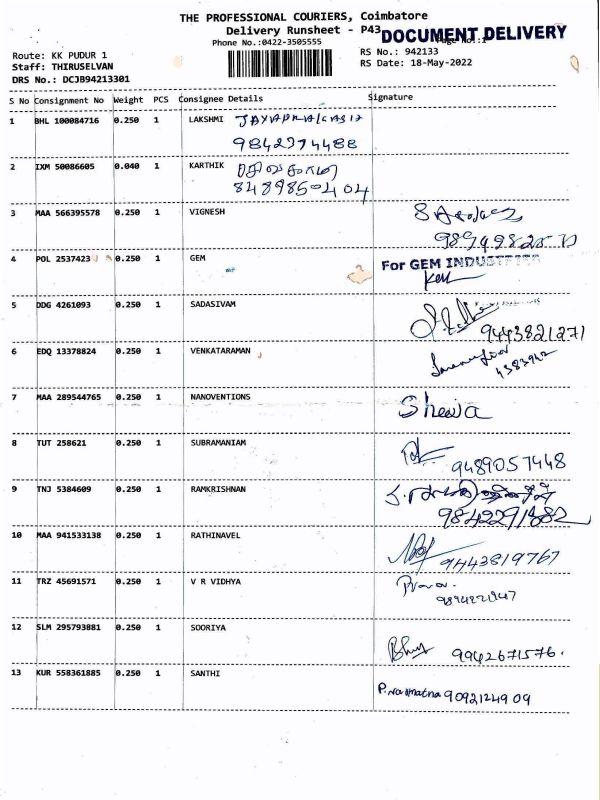 THE PROFESSIONAL COURIERS, Coimbatore
Delivery Runsheet - P43
DOCUMENT DELIVERY
Phone No.:0422-3505555
Route: KK PUDUR 1
RS No.: 942133
Staff: THIRUSELVAN
RS Date: 18-May-2022
DRS No.: DCJB94213301
S No Consignment No Weight PCS Consignee Details Signature
1 BHL 100084716 0.250 1 LAKSHMI
9842974488
2 IXM 50086605 0.040 1 KARTHIK
8489850404
3 MAA 566395578 0.250 1 VIGNESH
4 POL 2537423 0.250 1 GEM For GEM INDUSTRIES
5 DDG 4261093 0.250 1 SADASIVAM
9443821271
6 EDQ 13378824 0.250 1 VENKATARAMAN
7 MAA 289544765 0.250 1 NANOVENTIONS
8 TUT 258621 0.250 1 SUBRAMANIAM
9489057448
9 TNJ 5384609 0.250 1 RAMKRISHNAN
9842291882
10 MAA 941533138 0.250 1 RATHINAVEL
9443819767
11 TRZ 45691571 0.250 1 V R VIDHYA
12 SLM 295793881 0.250 1 SOORIYA
9942671576.
13 KUR 558361885 0.250 1 SANTHI
9092124909